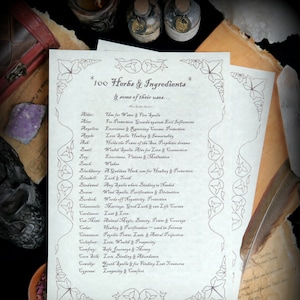 100 Herbs & Ingredients
& some of their uses...
Alder: Use for Water & Fire Spells
Aloe: For Protection, Guards against Evil Influences
Angelica: Exorcisms & Removing Curses, Protection
Apple: Love Spells, Healing & Immortality
Ash: Holds the Power of the Sea, Prophetic dreams
Basil: Wealth Spells, Also for Love & Protection
Bay: Exorcisms, Visions & Meditation
Beech: Wishes
Blackberry: A Goddess Herb, use for Healing & Protection
Bluebell: Luck & Truth
Bindweed: Any Spells when Binding is Needed
Broom: Wind Spells, Purification & Divination
Burdock: Wards off Negativity, Protection
Chamomile: Marriage, Good Luck & any Gift Venture
Cardamon: Lust & Love
Cat Mint: Animal Magic, Beauty, Power & Courage
Cedar: Healing & Purification
Cinnamon: Psychic Power, Love, & Astral Projection
Colstfoot: Love, Wealth & Prosperity
Comfrey: Safe Journeys & Money
Corn Silk: Love, Luck & Abundance
Cowslip: Youth Spells & for Finding Lost Treasures
Cypress: Longevity & Comfort